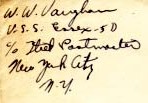 W. W. Vaughan
U.S.S. Essex-50
c/o Fleet Postmaster
New York City
N.Y.